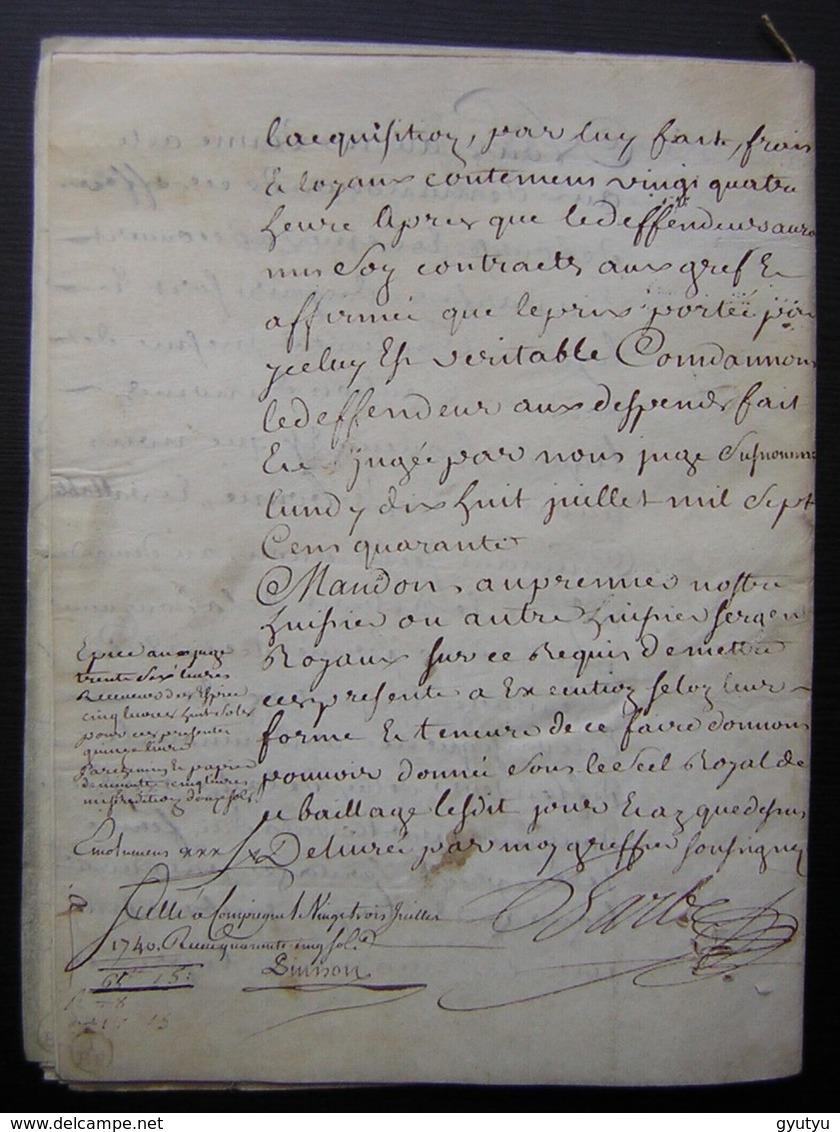 lacquisition, par luy fait, frais
Et loyaux contemens vingt quatre
heure apres que ledeffendeurs aura
mis Son contracts aux gref Et
affirmée que leprix portée par
yceluy Est veritable Comdannons
ledeffendeur aux despends fait
Et jugée par nous juge Susnommé
lundy dix huit juillet mil Sept
Cens quarante
Mandons aupremier nostre
huissier ou autre huissier sergen
Royaux sur ce Requis demettre
ces presente a Execution selon leur
forme Et teneure de ce faire donnons
pouvoir donnée Sous le Scel Royal de
ce baillage lesdit jour Et an que dessus
Delivrée par moy greffier soussigney
Epice aux juge
trente Six livres
Receveurs des Espice
cinq livres huit Sols
pour ces presentes
quinze livre
Parchemin Et papier
cinq livres
Emolumens xxx s
Scellé a Compiegne le Vingt trois Juillet
1740. Receu quarante cinq sols
Barbe
61 15